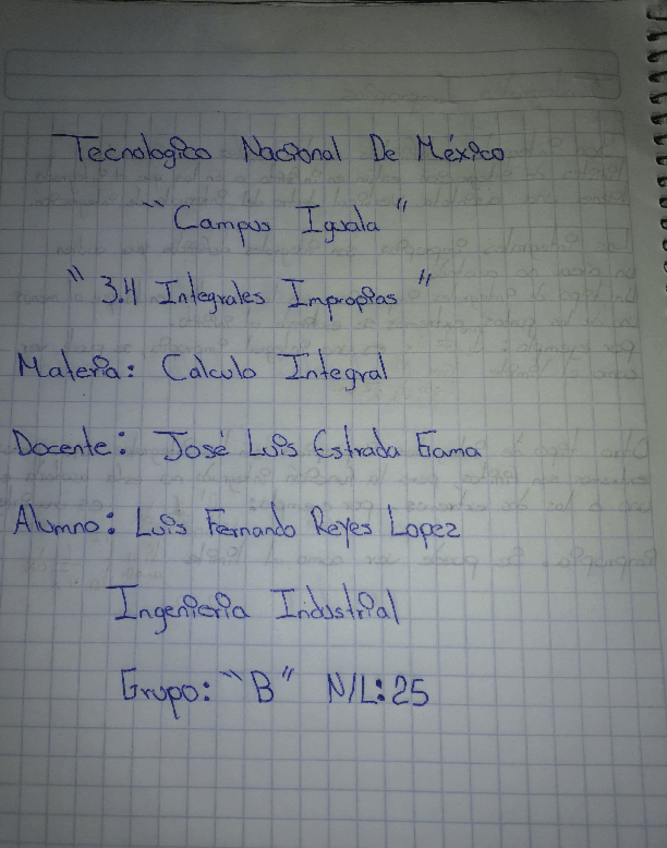 Tecnologico Nacional De México
"Campus Iguala"
"3.4 Integrales Impropias"
Materia: Calculo Integral
Docente: José Luis Estrada Gama
Alumno: Luis Fernando Reyes Lopez
Ingenieria Industrial
Grupo: "B" N/L: 25